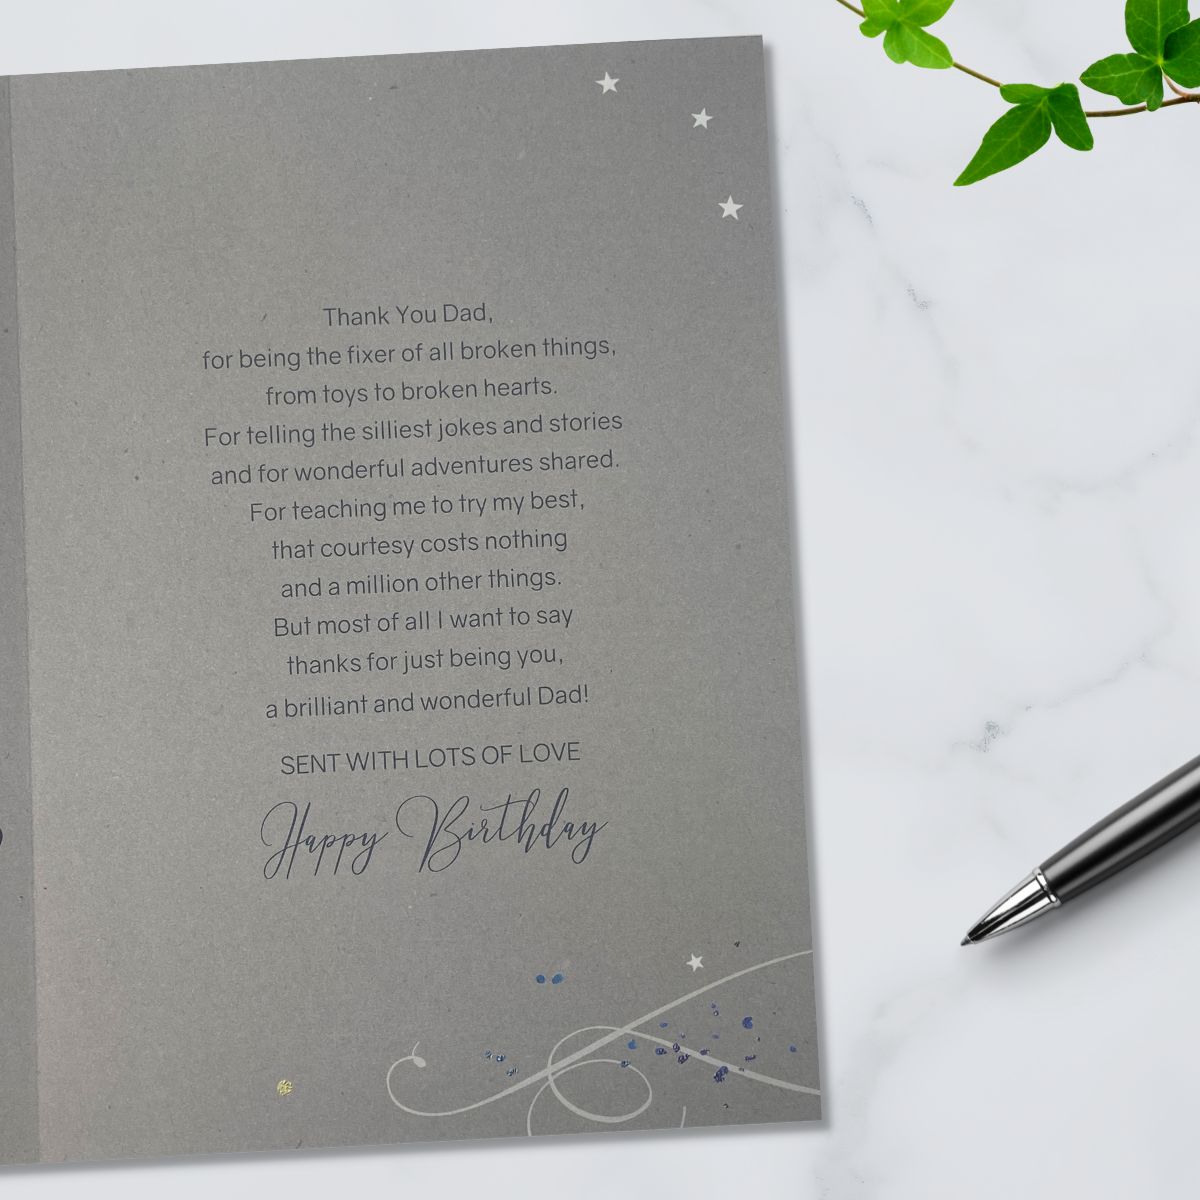 Thank You Dad,
for being the fixer of all broken things,
from toys to broken hearts.
For telling the silliest jokes and stories
and for wonderful adventures shared.
For teaching me to try my best,
that courtesy costs nothing
and a million other things.
But most of all I want to say
thanks for just being you,
a brilliant and wonderful Dad!
SENT WITH LOTS OF LOVE
Happy Birthday